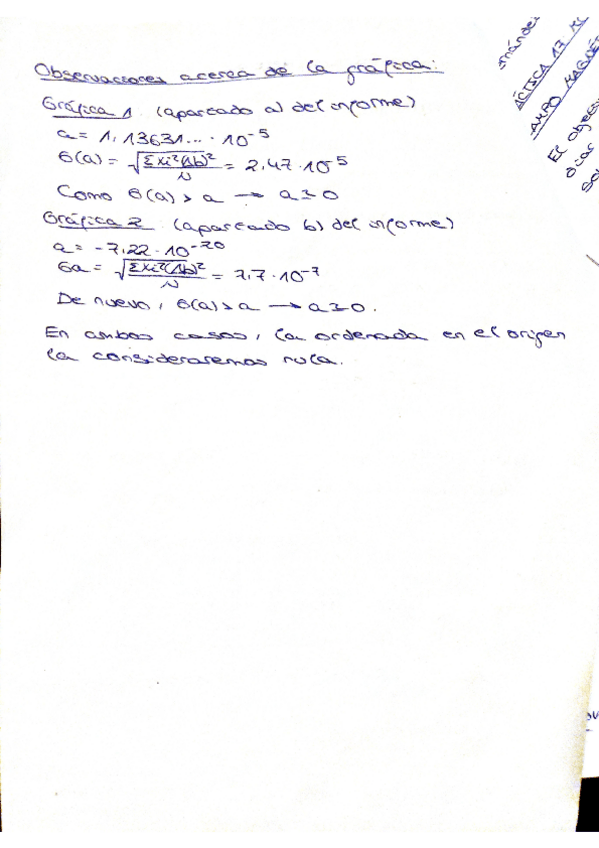 Observaciones acerca de la gráfica:
Gráfica 1 (apartado a) del informe)
a = 1,13631... · 10^-5
σ(a) = √(Σxi²(Δb)²/N) = 2,47 · 10^-5
Como σ(a) > a → a ≃ 0
Gráfica 2 (apartado b) del informe)
a = -7,22 · 10^-20
σa = √(Σxi²(Δb)²/N) = 7,7 · 10^-7
De nuevo, σ(a) > a → a ≃ 0.
En ambos casos, la ordenada en el origen
la consideraremos nula.
ÁCTICA 17
El obje